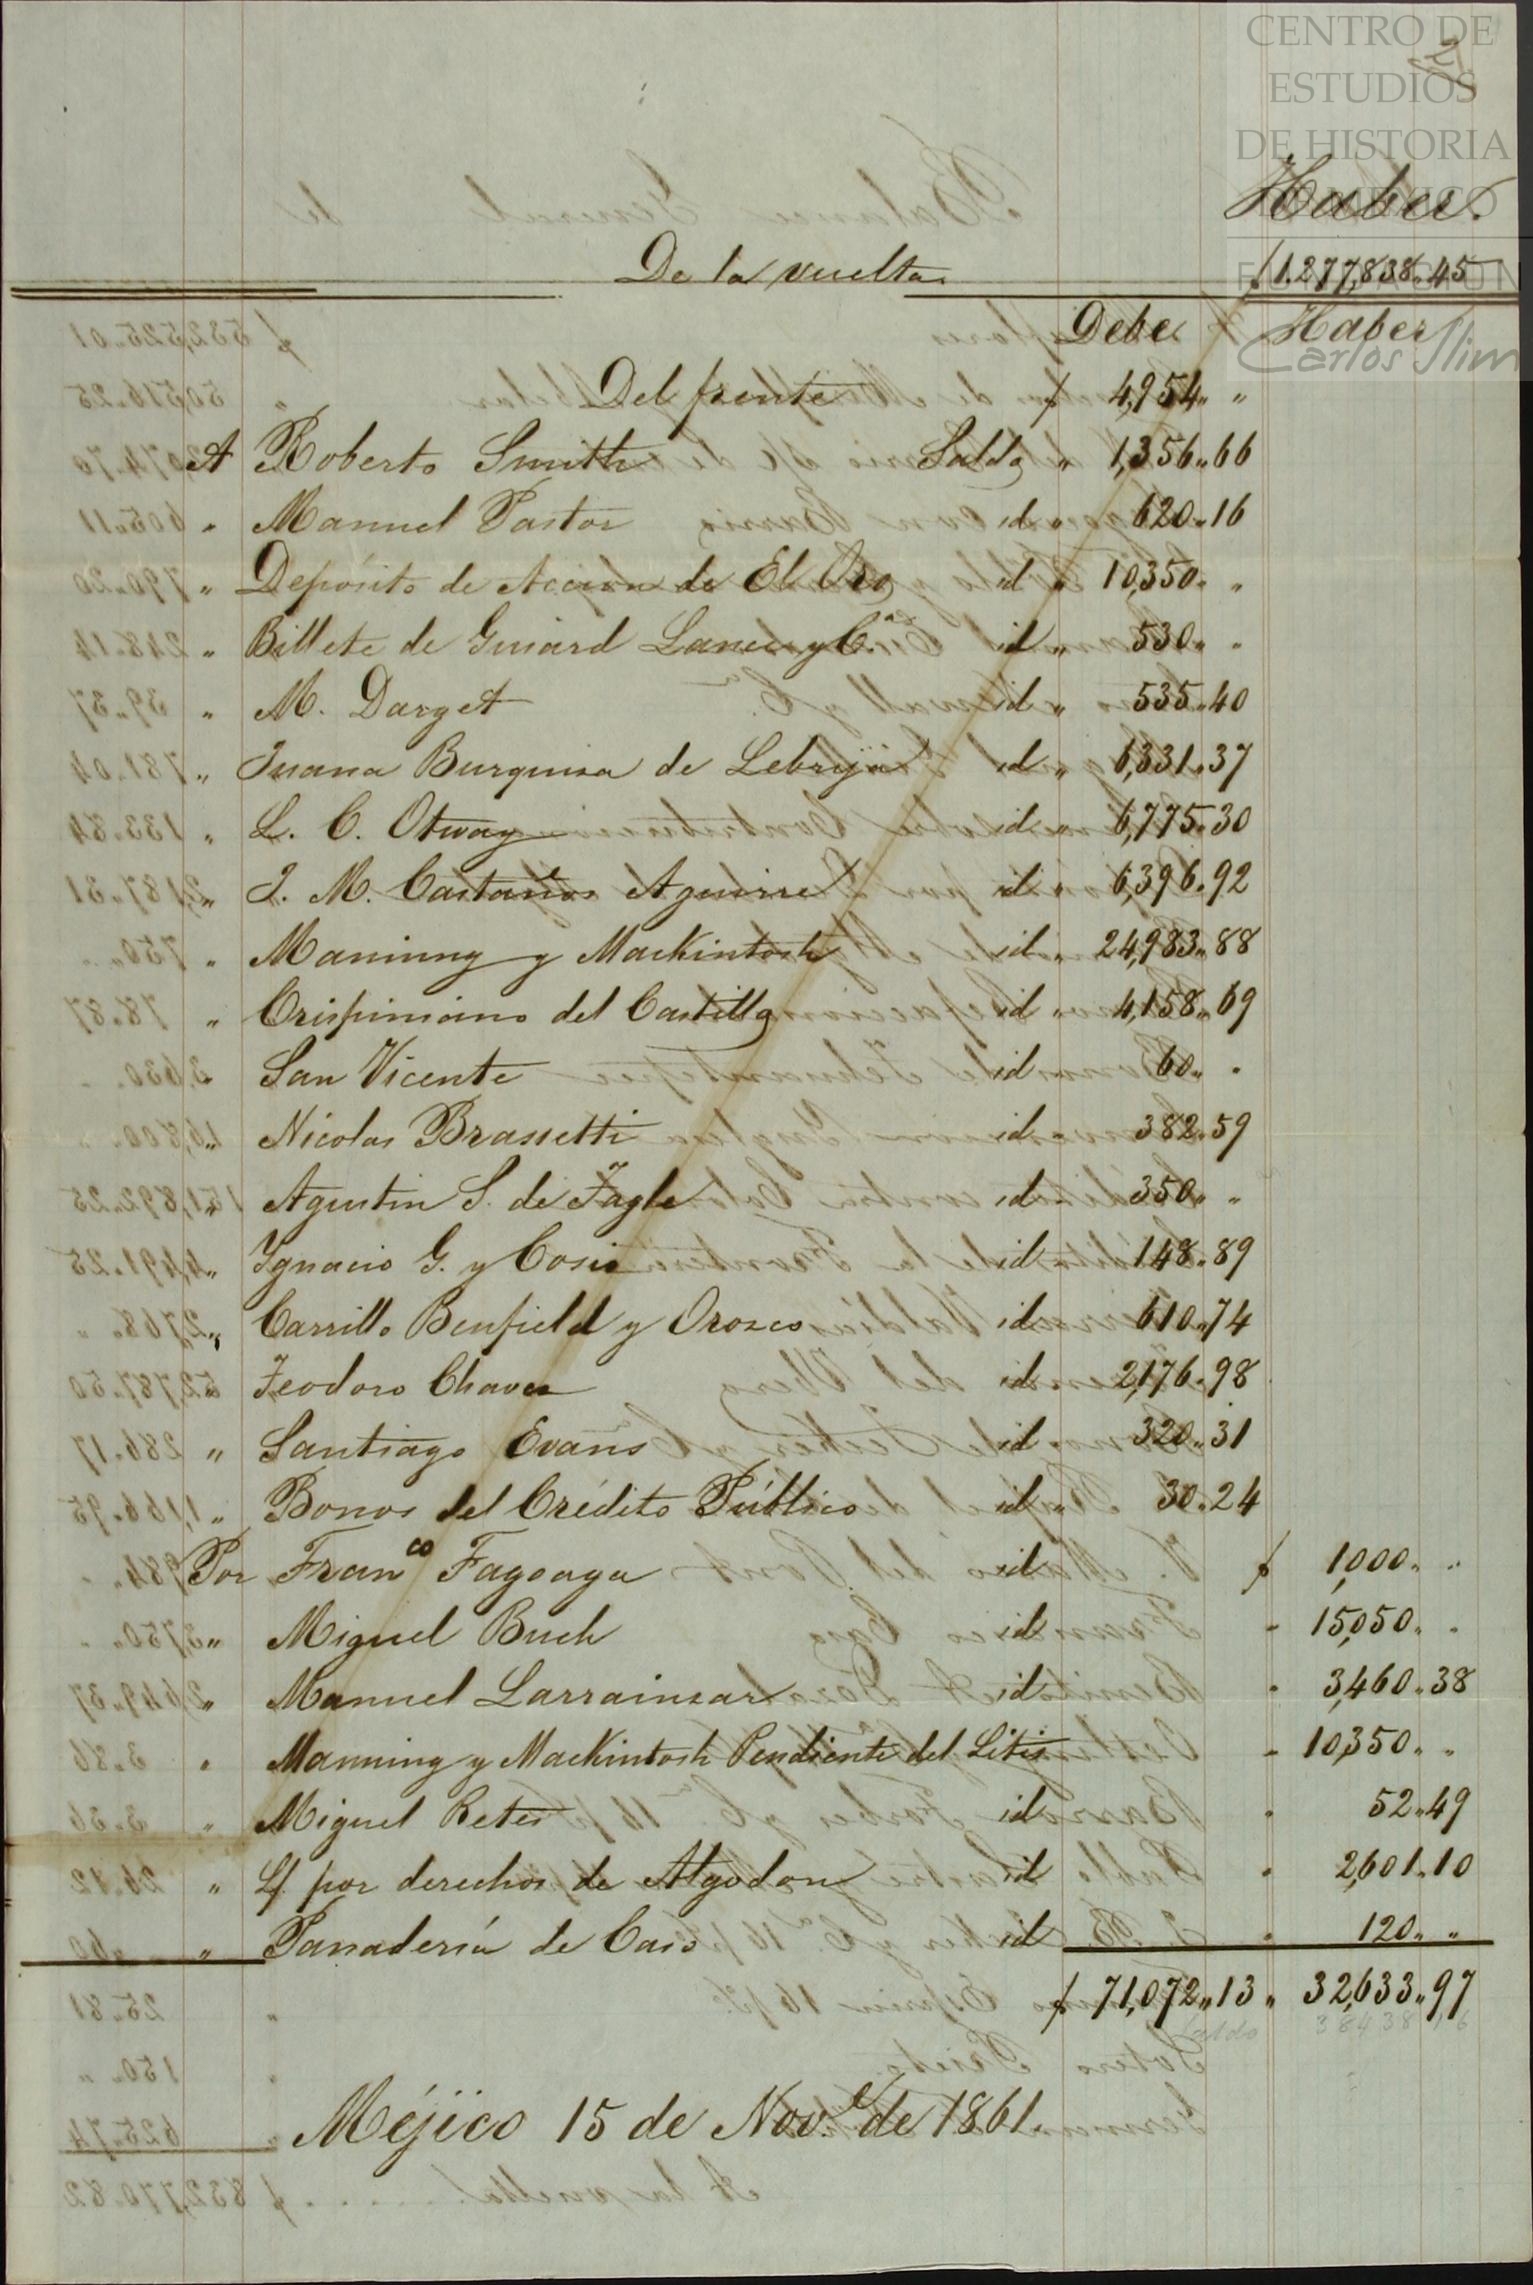 CENTRO DE
ESTUDIOS
DE HISTORIA
DE MEXICO
2
Haber.
De la vuelta $1.277,838.45
FUNDACION
Debe Haber
Carlos Slim
Del frente $ 4,954 " "
A Roberto Smith Saldo " 1,356 " 66
" Manuel Pastor id " 620 " 16
" Depósito de Accion de El Oro id " 10,350 " "
" Billete de Guiard Lanec y C.ª id " 530 " "
" M. Darget id " 535 " 40
" Juana Burguisa de Lebrija id " 6,331 " 37
" L. C. Otway id " 6,775 " 30
" J. M. Castaños Aguirre id " 6,396 " 92
" Manning y Mackintosh id " 24,983 " 88
" Crispiniano del Castillo id " 4,158 " 69
" San Vicente id " 60 " "
" Nicolas Brassetti id " 382 " 59
" Agustin S. de Tagle id " 350 " "
" Ygnacio G. y Cosio id " 148 " 89
" Carrillo Benfield y Orozco id " 610 " 74
" Teodoro Chavez id " 2,176 " 98
" Santiago Evans id " 320 " 31
" Bonos del Crédito Público id " 30 " 24
Por Fran.co Fagoaga id $ 1,000 " "
" Miguel Buch id " 15,050 " "
" Manuel Larrainzar id " 3,460 " 38
" Manning y Mackintosh Pendiente del Litis " 10,350 " "
" Miguel Retes id " 52 " 49
" Lf. por derechos de Algodon id " 2,601 " 10
" Panadería de Caso id " 120 " "
$ 71,072 " 13 " 32,633 " 97
Saldo 38438 16
Méjico 15 de Nov.e de 1861.